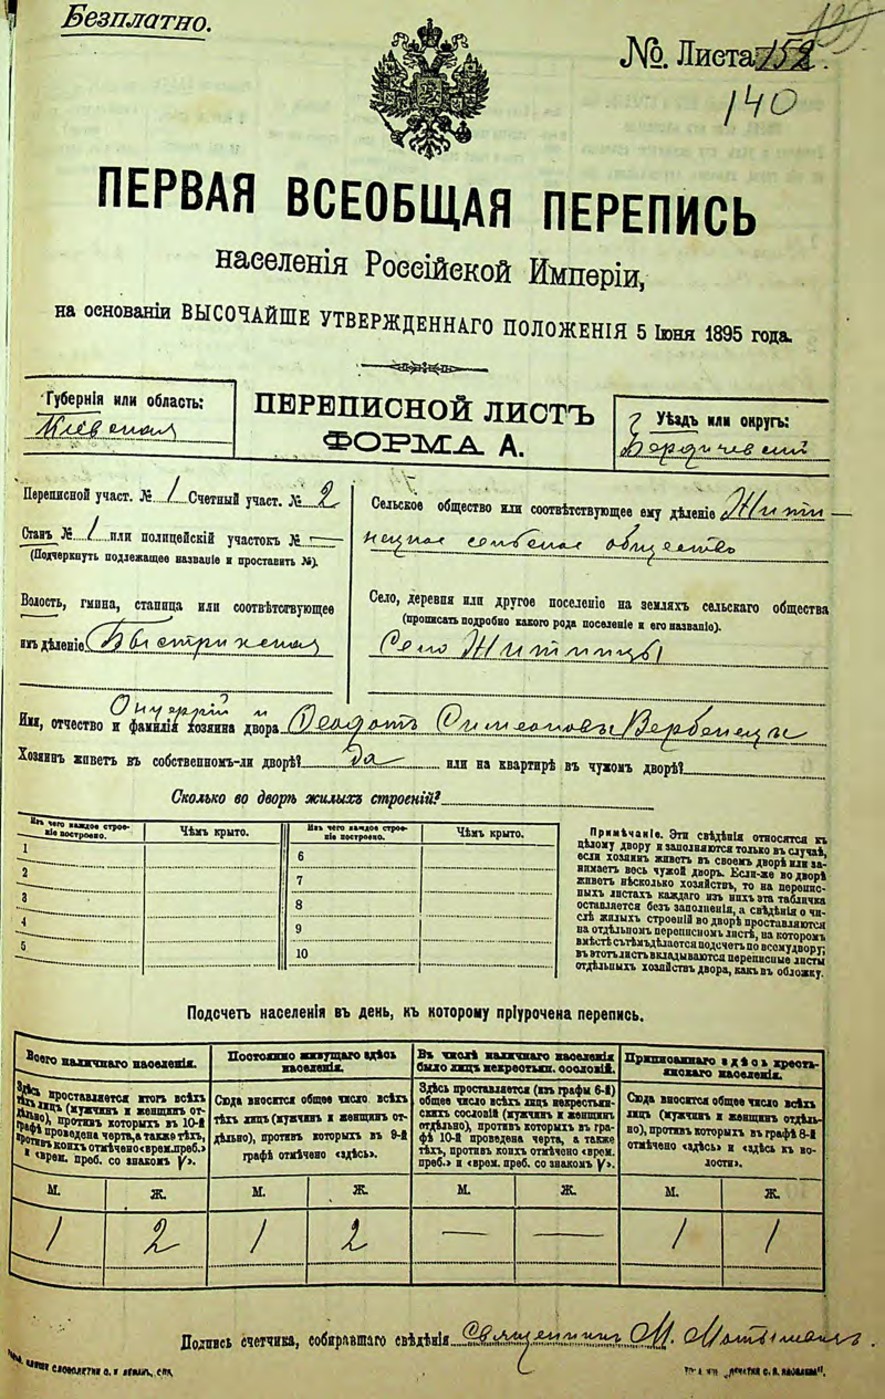 Безплатно.
№. Листа 152.
140
ПЕРВАЯ ВСЕОБЩАЯ ПЕРЕПИСЬ
населенія Россійской Имперіи,
на основаніи ВЫСОЧАЙШЕ УТВЕРЖДЕННАГО ПОЛОЖЕНІЯ 5 Іюня 1895 года.
Губернія или область:
Кіевская
ПЕРЕПИСНОЙ ЛИСТЪ
ФОРМА А.
Уѣздъ или округъ:
Бердичевскій
Переписной участ. № 1 Счетный участ. № 2
Станъ № 1 или полицейскій участокъ № —
(Подчеркнуть подлежащее названіе и проставить №).
Волость, гмина, станица или соотвѣтствующее
имъ дѣленіе Быстрикская
Сельское общество или соотвѣтствующее ему дѣленіе Жит-
сельское общество
Село, деревня или другое поселеніе на земляхъ сельскаго общества
(прописать подробно какого рода поселеніе и его названіе).
Село Житинцы
Онуфрій и
Имя, отчество и фамилія хозяина двора Ѳеодотъ Симеоновъ Вербецкъ
Хозяинъ живетъ въ собственномъ-ли дворѣ? да или на квартирѣ въ чужомъ дворѣ?
Сколько во дворѣ жилыхъ строеній?
Изъ чего каждое строеніе построено.
Чѣмъ крыто.
Изъ чего каждое строеніе построено.
Чѣмъ крыто.
1
2
3
4
5
6
7
8
9
10
Примѣчаніе. Эти свѣдѣнія относятся къ
цѣлому двору и заполняются только въ случаѣ,
если хозяинъ живетъ въ своемъ дворѣ или за-
нимаетъ весь чужой дворъ. Если-же во дворѣ
живетъ нѣсколько хозяйствъ, то на перепис-
ныхъ листахъ каждаго изъ нихъ эта табличка
оставляется безъ заполненія, а свѣдѣнія о чи-
слѣ жилыхъ строеній во дворѣ проставляются
на отдѣльномъ переписномъ листѣ, на которомъ
вмѣстѣ съ тѣмъ дѣлается подсчетъ по всему двору;
въ этотъ листъ вкладываются переписные листы
отдѣльныхъ хозяйствъ двора, какъ въ обложку.
Подсчетъ населенія въ день, къ которому пріурочена перепись.
Всего наличнаго населенія.
Здѣсь проставляется итогъ всѣхъ
тѣхъ лицъ (мужчинъ и женщинъ от-
дѣльно), противъ которыхъ въ 10-й
графѣ проведена черта, а также тѣхъ,
противъ коихъ отмѣчено «врем. преб.»
и «врем. преб. со знакомъ V».
М.
Ж.
1
2
Постоянно живущаго здѣсь
населенія.
Сюда вносится общее число всѣхъ
тѣхъ лицъ (мужчинъ и женщинъ от-
дѣльно), противъ которыхъ въ 9-й
графѣ отмѣчено «здѣсь».
М.
Ж.
1
2
Въ числѣ наличнаго населенія
было лицъ некрестьян. сословій.
Здѣсь проставляется (изъ графы 6-й)
общее число всѣхъ лицъ некрестьян-
скихъ сословій (мужчинъ и женщинъ
отдѣльно), противъ которыхъ въ гра-
фѣ 10-й проведена черта, а также
тѣхъ, противъ коихъ отмѣчено «врем.
преб.» и «врем. преб. со знакомъ V».
М.
Ж.
—
—
Приписаннаго здѣсь кресть-
янскаго населенія.
Сюда вносится общее число всѣхъ
лицъ (мужчинъ и женщинъ отдѣль-
но), противъ которыхъ въ графѣ 8-й
отмѣчено «здѣсь» и «здѣсь въ во-
лости».
М.
Ж.
1
1
Подпись счетчика, собиравшаго свѣдѣнія Священникъ М.